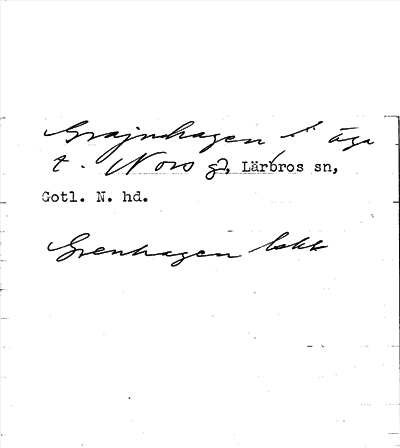 Grajnhagen i äga
t. Nors gd, Lärbros sn,
Gotl. N. hd.
Grenhagen